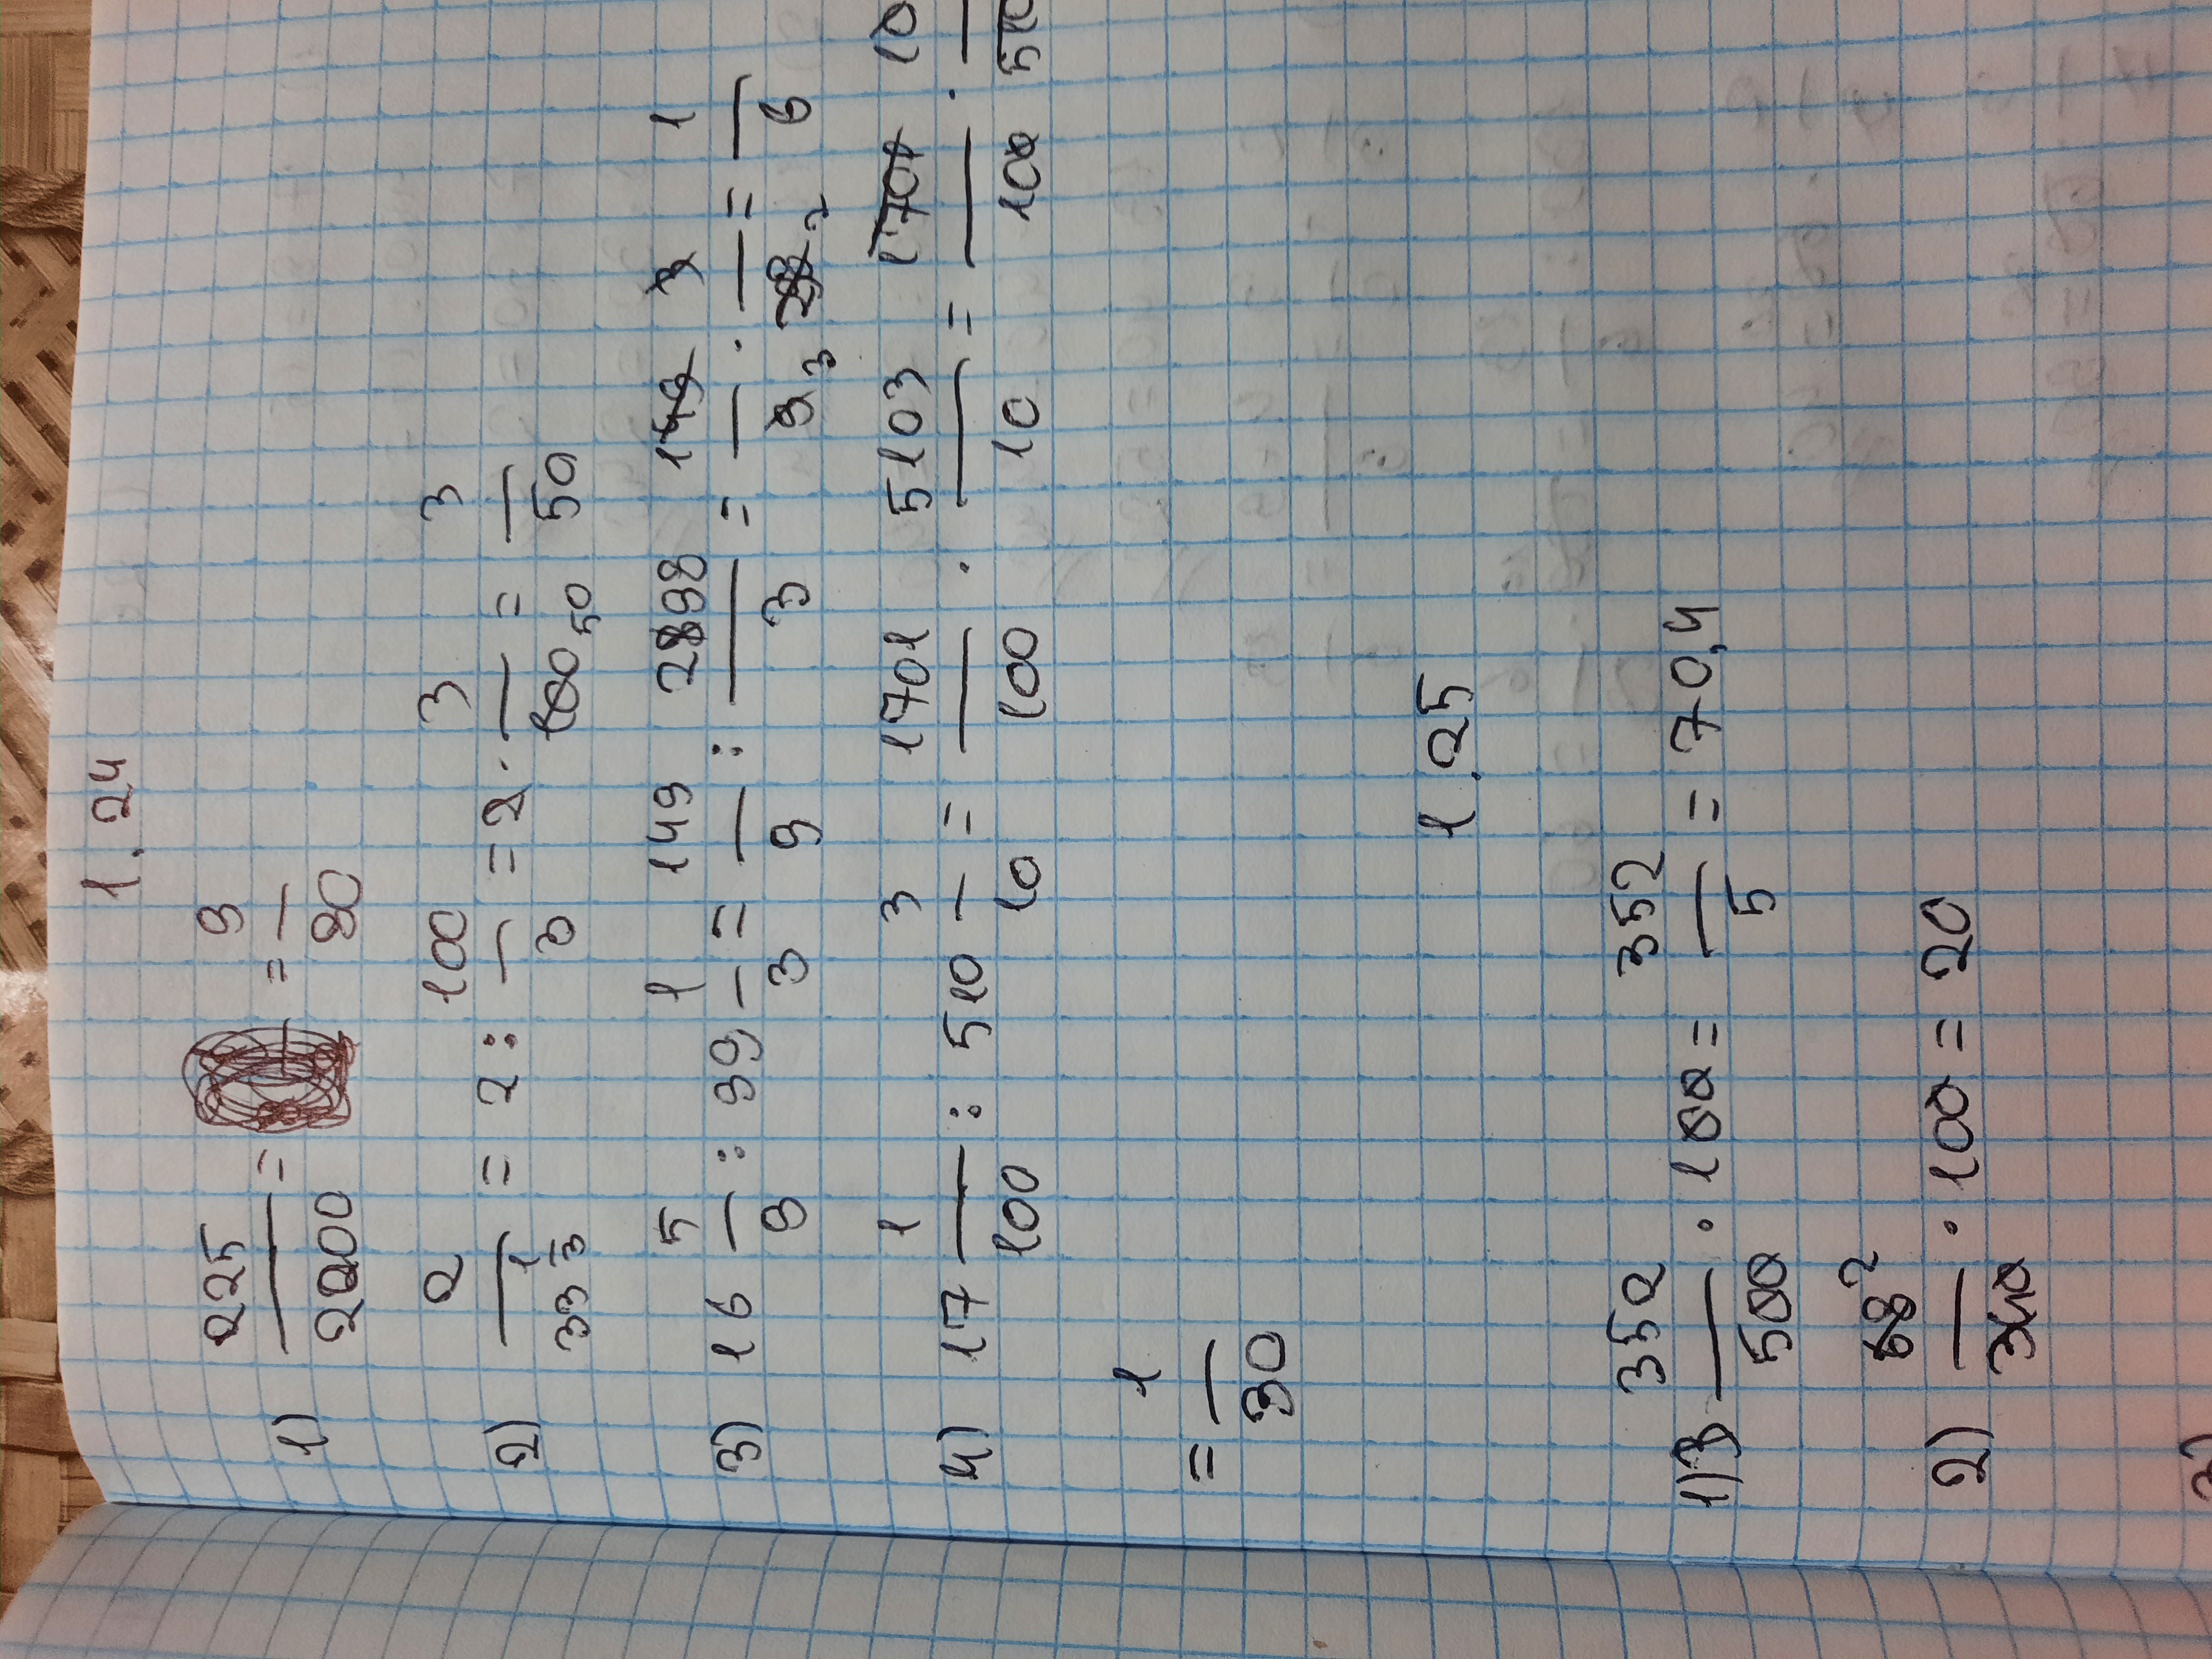 1.24
1) 225/2000 = = 9/80
2) 2/33 1/3 = 2 : 100/3 = 2 · 3/100 50 = 3/50
3) 16 5/9 : 99 1/3 = 149/9 : 298/3 = 149/9 3 · 3/298 2 = 1/6
4) 17 1/100 : 510 3/10 = 1701/100 · 5103/10 = 1701/100 · 10/510
= 1/30
1.25
1) 352/500 · 100 = 352/5 = 70,4
2) 68 2/340 · 100 = 20
3)